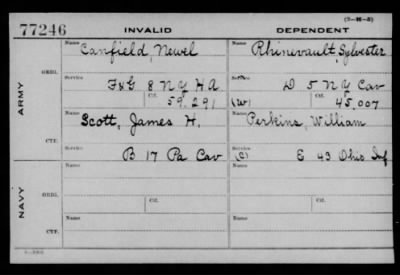 (7-16-5)
77246 INVALID DEPENDENT
Name Canfield, Newel Name Rhinevault, Sylvester
ORIG.
Service F&G 8 NY HA Service D 5 NY Cav
Ctf. 59.291 (W) Ctf. 45.007
ARMY
Name Scott, James H. Name Perkins, William
CTF.
Service B 17 Pa Cav Service (C) E 43 Ohio Inf
Name Name
ORIG.
Ctf. Ctf.
NAVY
Name Name
CTF.